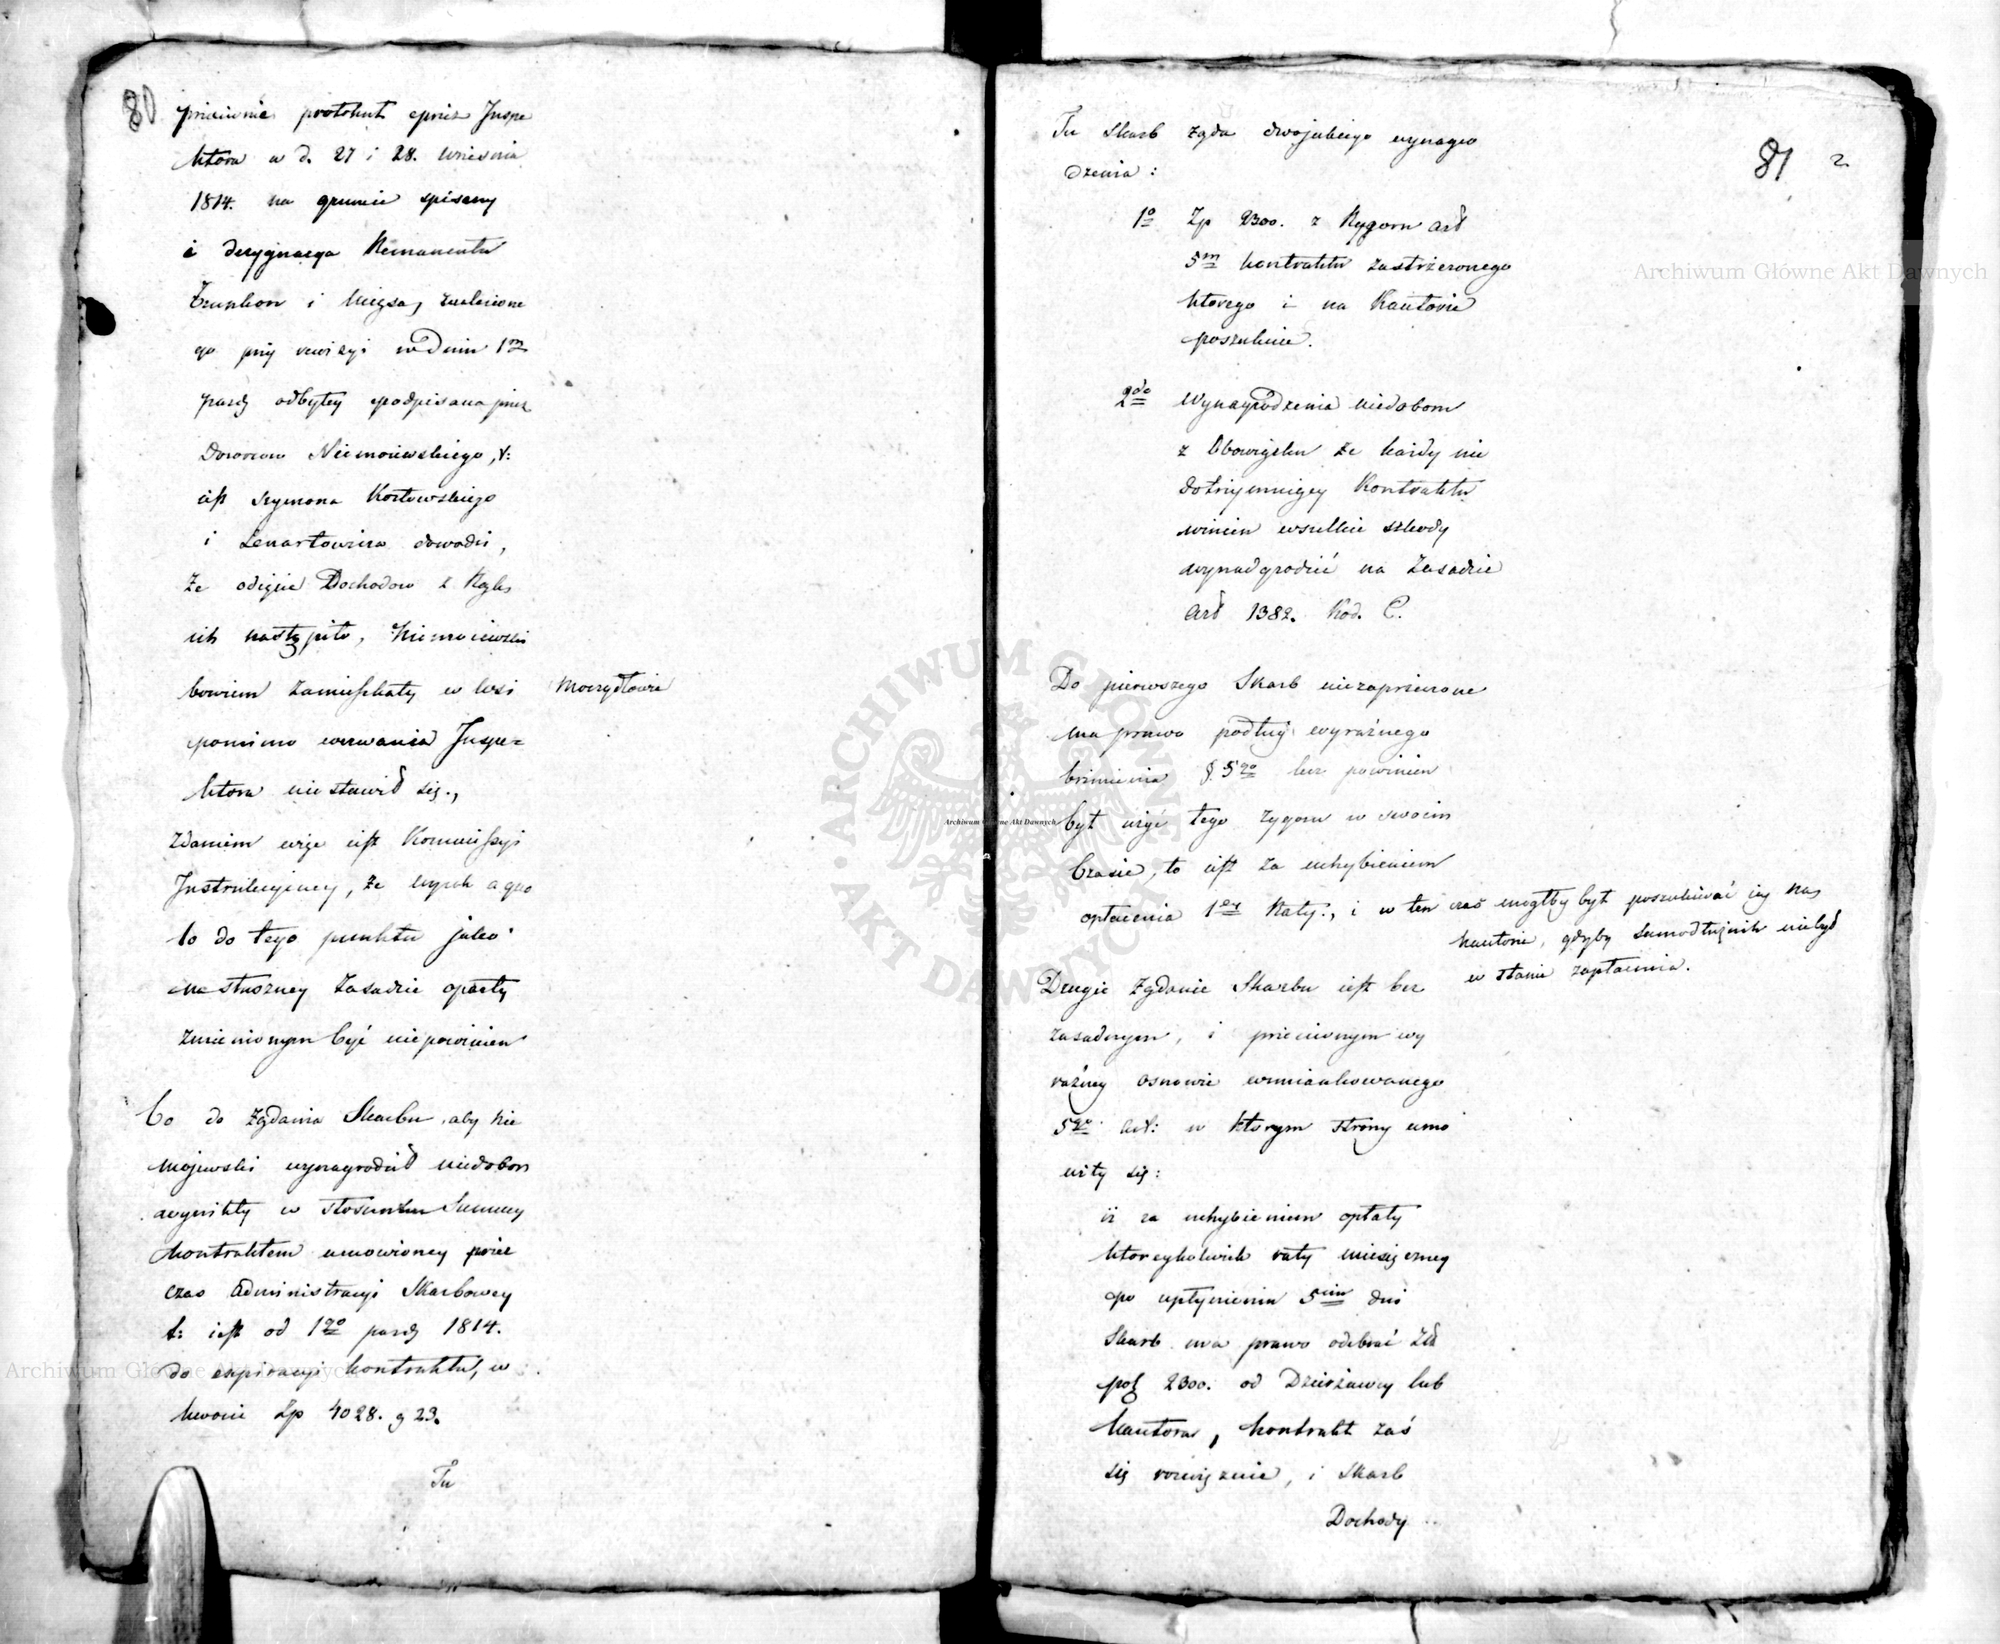 80
przeciwnie protokuł przez Inspe
ktora w d. 27 i 28. Września
1814. na gruncie spisany
i desygnacya Remanentu
Trunkow i Mięsa, znalezione
go przy rewizyi w Dniu 1m
pazdz odbytey podpisana przez
Dozorcow Niemoiewskiego, t:
iest Szymona Kozłowskiego
i Lenartowicza dowodzi,
że odięcie Dochodow z Rąk
ich nastąpiło, Niemoiewski
bowiem zamieszkały w Wsi Moczydłowie
pomimo wezwania Inspe=
ktora nie stawił się.,
Zdaniem więc iest Kommissyi
Instrukcyiney, że wyrok a quo
co do tego punktu jako
na słuszney Zasadzie oparty
zmienionym być nie powinien
Co do Żądania Skarbu, aby Nie
mojewski wynagrodził niedobor
wynikły w stosunku Summy
kontraktem umowioney przez
czas Administracyi Skarbowey
t: iest od 1go pazdz 1814.
do expiracyi kontraktu, w
kwocie Zp 4028. g 23.
Tu
81 2
Tu Skarb żąda dwojakiego wynagro
dzenia:
1o Zp 2300. z Rygoru Art
5m kontraktu zastrzeżonego
ktorego i na Kautorze
poszukuie.
2do Wynagrodzenia niedoboru
z Obowiązku że każdy nie
dotrzymuiący Kontraktu
winien wszelkie szkody
wynadgrodzić na Zasadzie
Art 1382. Kod. C.
Do pierwszego Skarb niezaprzeczone
ma prawo podług wyraźnego
brzmienia §. 5go lecz powinien
był użyć tego rygoru w swoim
Czasie, to iest za uchybieniem
opłacenia 1ey Raty., i w ten czas mogłby był poszukiwać iey na
kautorze, gdyby samodłużnik niebył
w stanie zapłacenia.
Drugie Żądanie Skarbu iest bez
zasadnym, i przeciwnym wy
raźney osnowie wzmiankowanego
5go Art: w ktorym strony umo
wiły się:
iż za uchybieniem opłaty
ktoreykolwiek raty miesięczney
po upłynieniu 5ciu dni
Skarb ma prawo odebrać Zł
pol 2300. od Dzierżawcy lub
kautora, kontrakt zaś
się rozwiązuie, i Skarb
Dochody
Archiwum Główne Akt Dawnych
Archiwum Główne Akt Dawnych
Archiwum Główne Akt Dawnych
ARCHIWUM GŁÓWNE AKT DAWNYCH